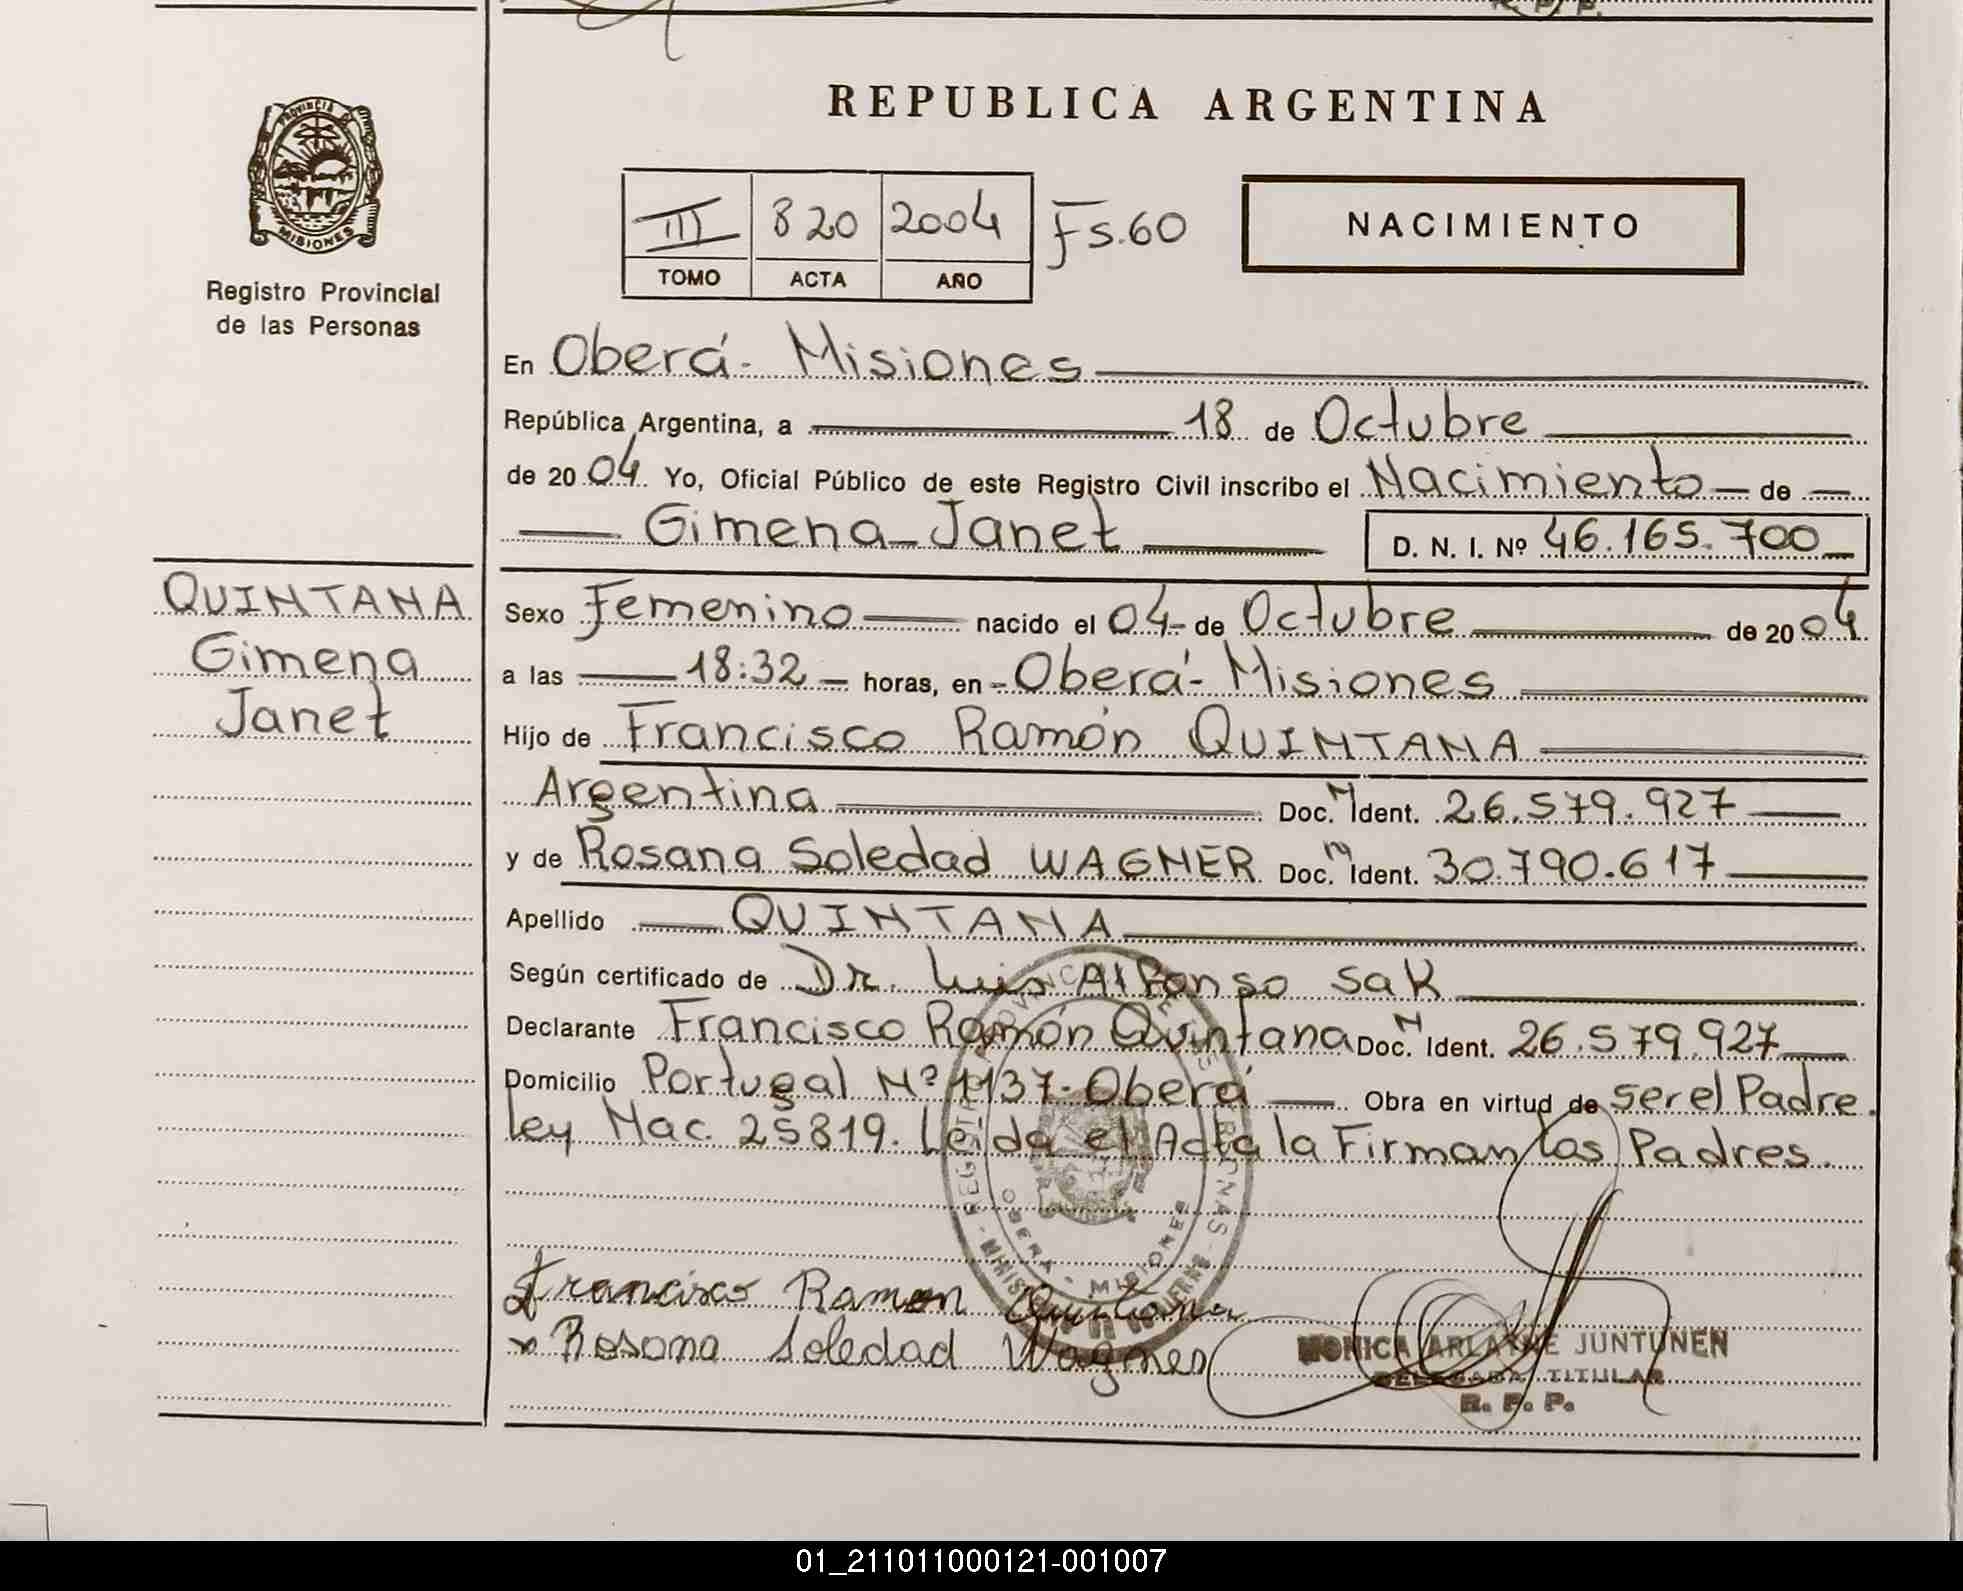 REPUBLICA ARGENTINA
PROVINCIA DE
MISIONES
Registro Provincial
de las Personas
III 820 2004 Fs.60
TOMO ACTA AÑO
NACIMIENTO
En Oberá - Misiones
República Argentina, a 18 de Octubre
de 2004 Yo, Oficial Público de este Registro Civil inscribo el Nacimiento de
Gimena Janet D. N. I. Nº 46.165.700
QUINTANA
Gimena
Janet
Sexo Femenino nacido el 04 de Octubre de 2004
a las 18:32 horas, en Oberá - Misiones
Hijo de Francisco Ramón QUINTANA
Argentina Doc. N Ident. 26.579.927
y de Rosana Soledad WAGNER Doc. N Ident. 30.790.617
Apellido QUINTANA
Según certificado de Dr. Luis Alfonso Sak
Declarante Francisco Ramón Quintana Doc. N Ident. 26.579.927
Domicilio Portugal Nº 1137 - Oberá Obra en virtud de ser el Padre.
Ley Nac. 25819. Leída el Acta la Firman los Padres.
OBERA - MISIONES
Francisco Ramon Quintana
Rosana Soledad Wagner
MONICA ARLAINE JUNTUNEN
DELEGADA TITULAR
R. P. P.
01_211011000121-001007